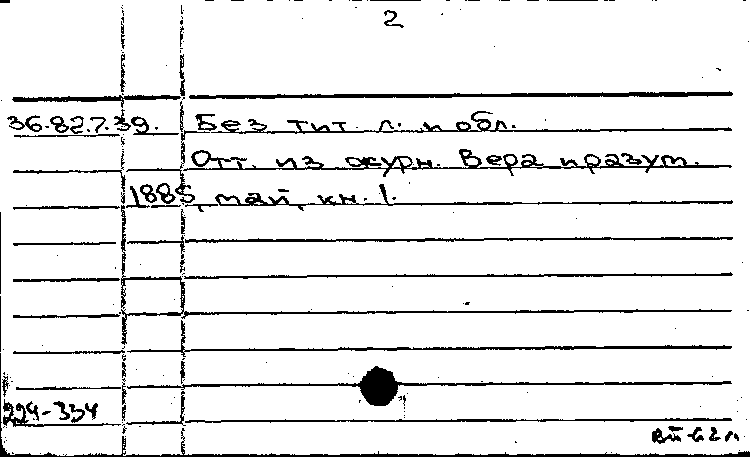 2
36.82.7.39. Без тит. л. и обл.
Отт. из журн. Вера и разум.
1885, май, кн. 1.
224-334